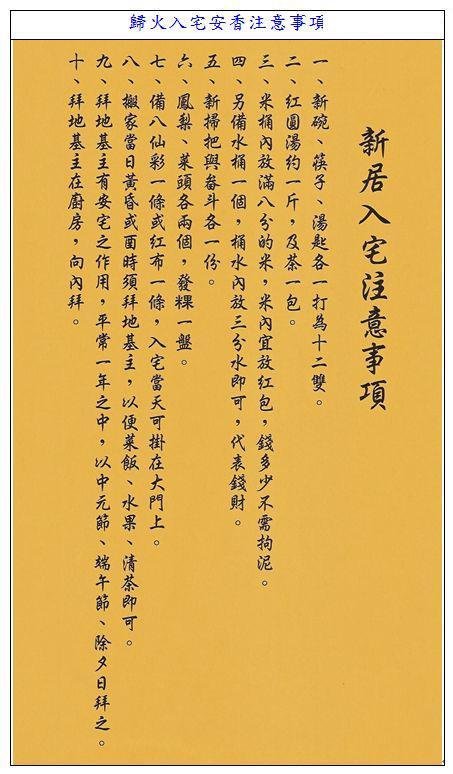 歸火入宅安香注意事項
新居入宅注意事項
一、新碗、筷子、湯匙各一打為十二雙。
二、紅圓湯約一斤，及茶一包。
三、米桶內放滿八分的米，米內宜放紅包，錢多少不需拘泥。
四、另備水桶一個，桶水內放三分水即可，代表錢財。
五、新掃把與畚斗各一份。
六、鳳梨、菜頭各兩個，發粿一盤。
七、備八仙彩一條或紅布一條，入宅當天可掛在大門上。
八、搬家當日黃昏或酉時須拜地基主，以便菜飯、水果、清茶即可。
九、拜地基主有安宅之作用，平常一年之中，以中元節、端午節、除夕日拜之。
十、拜地基主在廚房，向內拜。